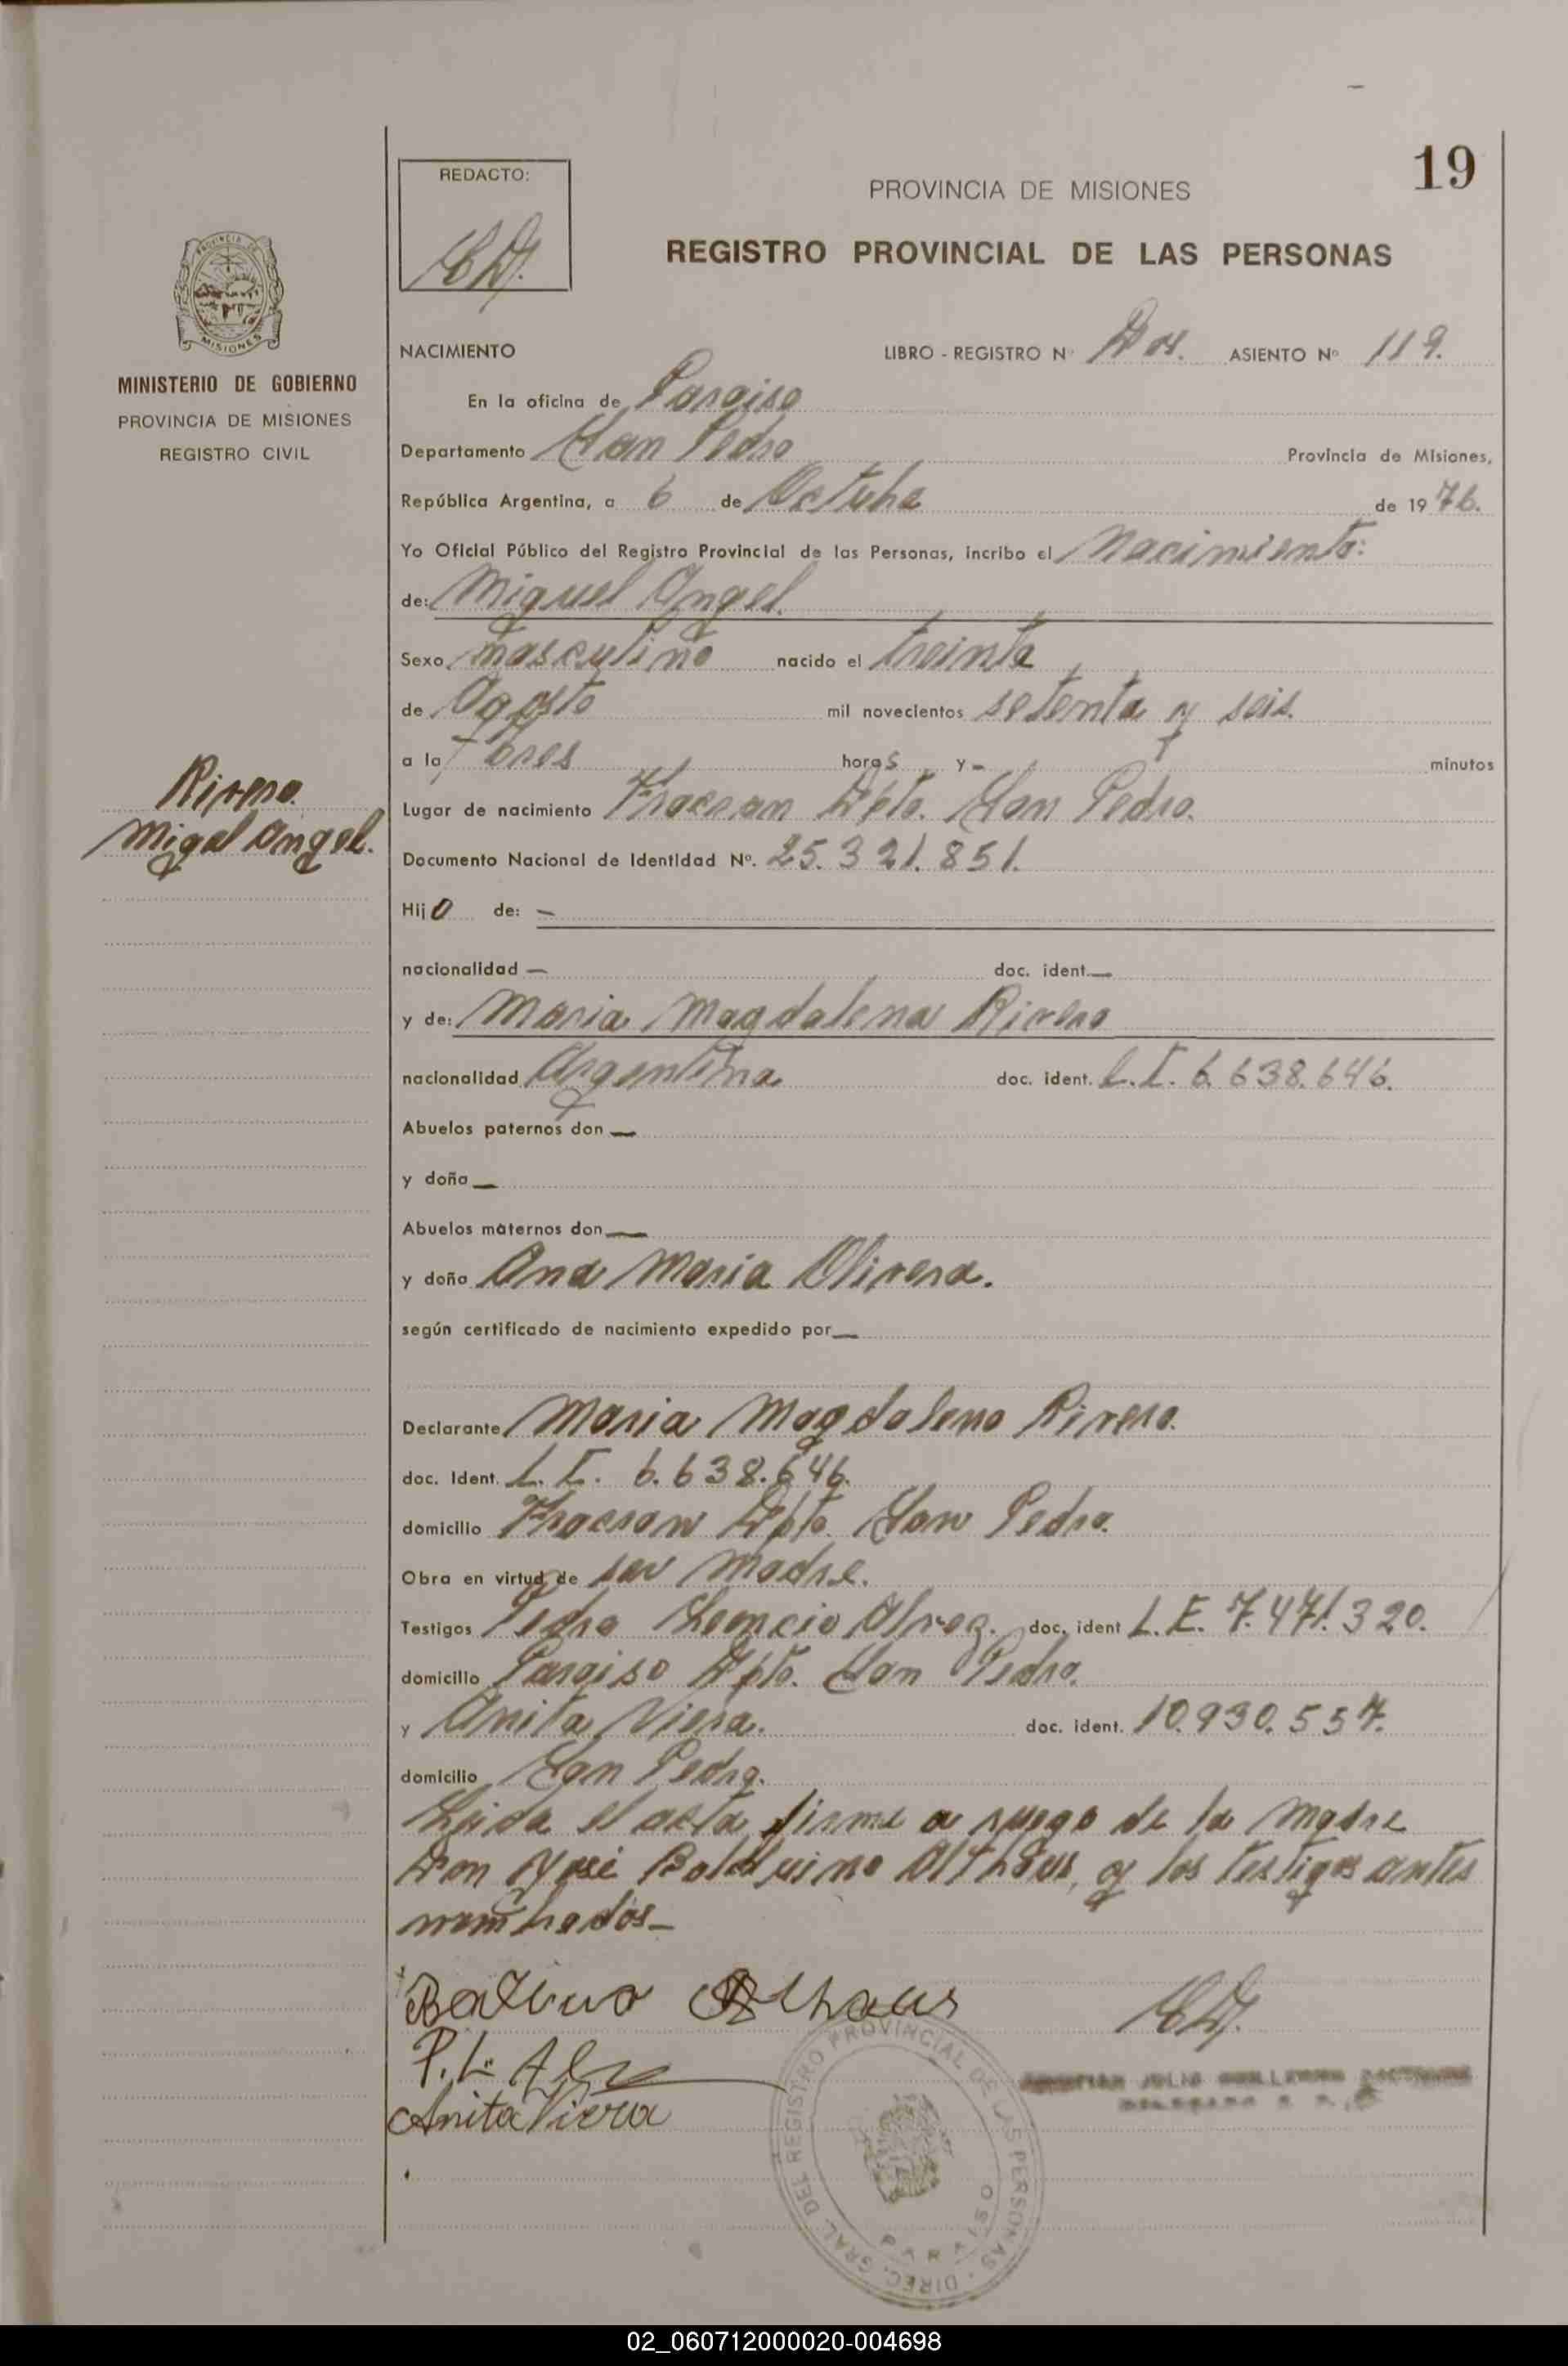 19
REDACTO:
PROVINCIA DE MISIONES
REGISTRO PROVINCIAL DE LAS PERSONAS
PROVINCIA DE
MISIONES
MINISTERIO DE GOBIERNO
PROVINCIA DE MISIONES
REGISTRO CIVIL
Rivero
Migel Angel.
NACIMIENTO LIBRO - REGISTRO Nº Dos. ASIENTO Nº 119.
En la oficina de Paraiso
Departamento San Pedro Provincia de Misiones,
República Argentina, a 6 de Octubre de 1976.
Yo Oficial Público del Registro Provincial de las Personas, incribo el Nacimiento:
de: Miguel Angel.
Sexo masculino nacido el treinta
de Agosto mil novecientos setenta y seis.
a la tres horas y -, minutos
Lugar de nacimiento Fracran Dpto. San Pedro.
Documento Nacional de Identidad Nº. 25.321.851.
Hijo de: —
nacionalidad — doc. ident. —
y de: Maria Magdalena Rivero
nacionalidad Argentina doc. ident. C.I. 6.638.646.
Abuelos paternos don —
y doña —
Abuelos maternos don —
y doña Ana Maria Olivera.
según certificado de nacimiento expedido por —
Declarante Maria Magdalena Rivero.
doc. Ident. C.I. 6.638.646.
domicilio Fracran Dpto. San Pedro.
Obra en virtud de ser madre.
Testigos Pedro Leoncio Alvez. doc. ident L.E. 7.471.320.
domicilio Paraiso Dpto. San Pedro.
y Anita Viera. doc. ident. 10.930.557.
domicilio San Pedro.
Leida el acta firme a ruego de la madre
Don José Balduino Althaus, y los testigos antes
nombrados-
P.L. Alv
Anita Viera
JULIO GUILLERMO
DIREC. GRAL. DEL REGISTRO PROVINCIAL DE LAS PERSONAS
PARAISO
02_060712000020-004698